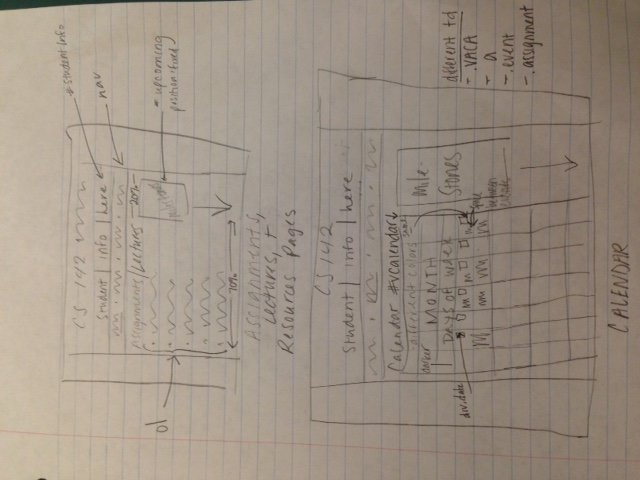 CS 142
#student info
student | info | here
nav
Assignments/Lectures 20%
ol
milestones
#upcoming
position:fixed
70%
Assignments,
Lectures, +
Resources Pages
CS 142
student | info | here
Calendar #vcalendar
different colors
same
darker
MONTH
Days of week
div.date
Mile-
Stones
space
between
events
different td
- .VACA
- a
- .event
- .assignment
CALENDAR